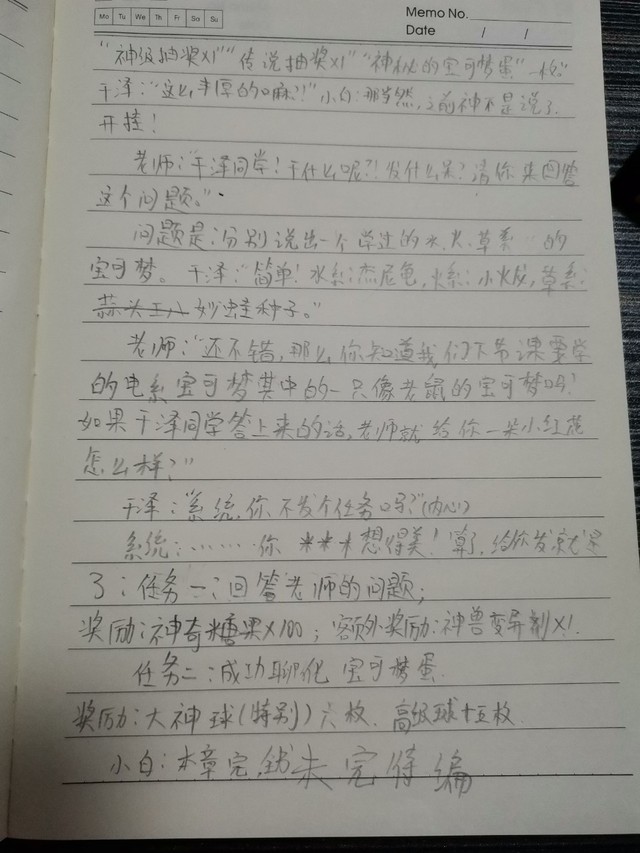 Mo Tu We Th Fr Sa Su
Memo No.
Date / /
"神级抽奖X1""传说抽奖X1""神秘的宝可梦蛋"一枚"
于泽:"这么丰厚的嘛?!"小白:那当然,之前神不是说了.
开挂!
老师:"于泽同学!干什么呢?!发什么呆?请你来回答
这个问题。"
问题是:分别说出一个学过的水、火、草系的
宝可梦。于泽:"简单!水系:杰尼龟,火系:小火龙,草系:
蒜头王八妙蛙种子。"
老师:"还不错,那么,你知道我们下节课要学
的电系宝可梦其中的一只像老鼠的宝可梦吗?
如果于泽同学答上来的话,老师就给你一朵小红花
怎么样?"
于泽:"系统,你不发个任务吗?"(内心)
系统:……你 ***想得美!算了,给你发就是
了:任务一:回答老师的问题;
奖励:神奇糖果X100;额外奖励:神兽变异剂X1.
任务二:成功孵化宝可梦蛋.
奖励:大神球(特别)六枚、高级球十五枚.
小白:本章完,未完待编